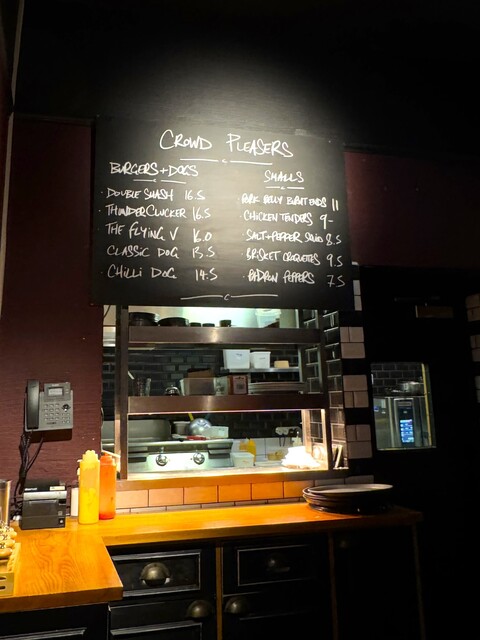 CROWD PLEASERS
BURGERS + DOGS
· DOUBLE SMASH 16.5
· THUNDERCLUCKER 16.5
THE FLYING V 16.0
CLASSIC DOG 13.5
· CHILLI DOG 14.5
SMALLS
· PORK BELLY BURNT ENDS 11
· CHICKEN TENDERS 9-
· SALT + PEPPER SQUID 8.5
· BRISKET CROQUETTES 9.5
· PADRON PEPPERS 7.5